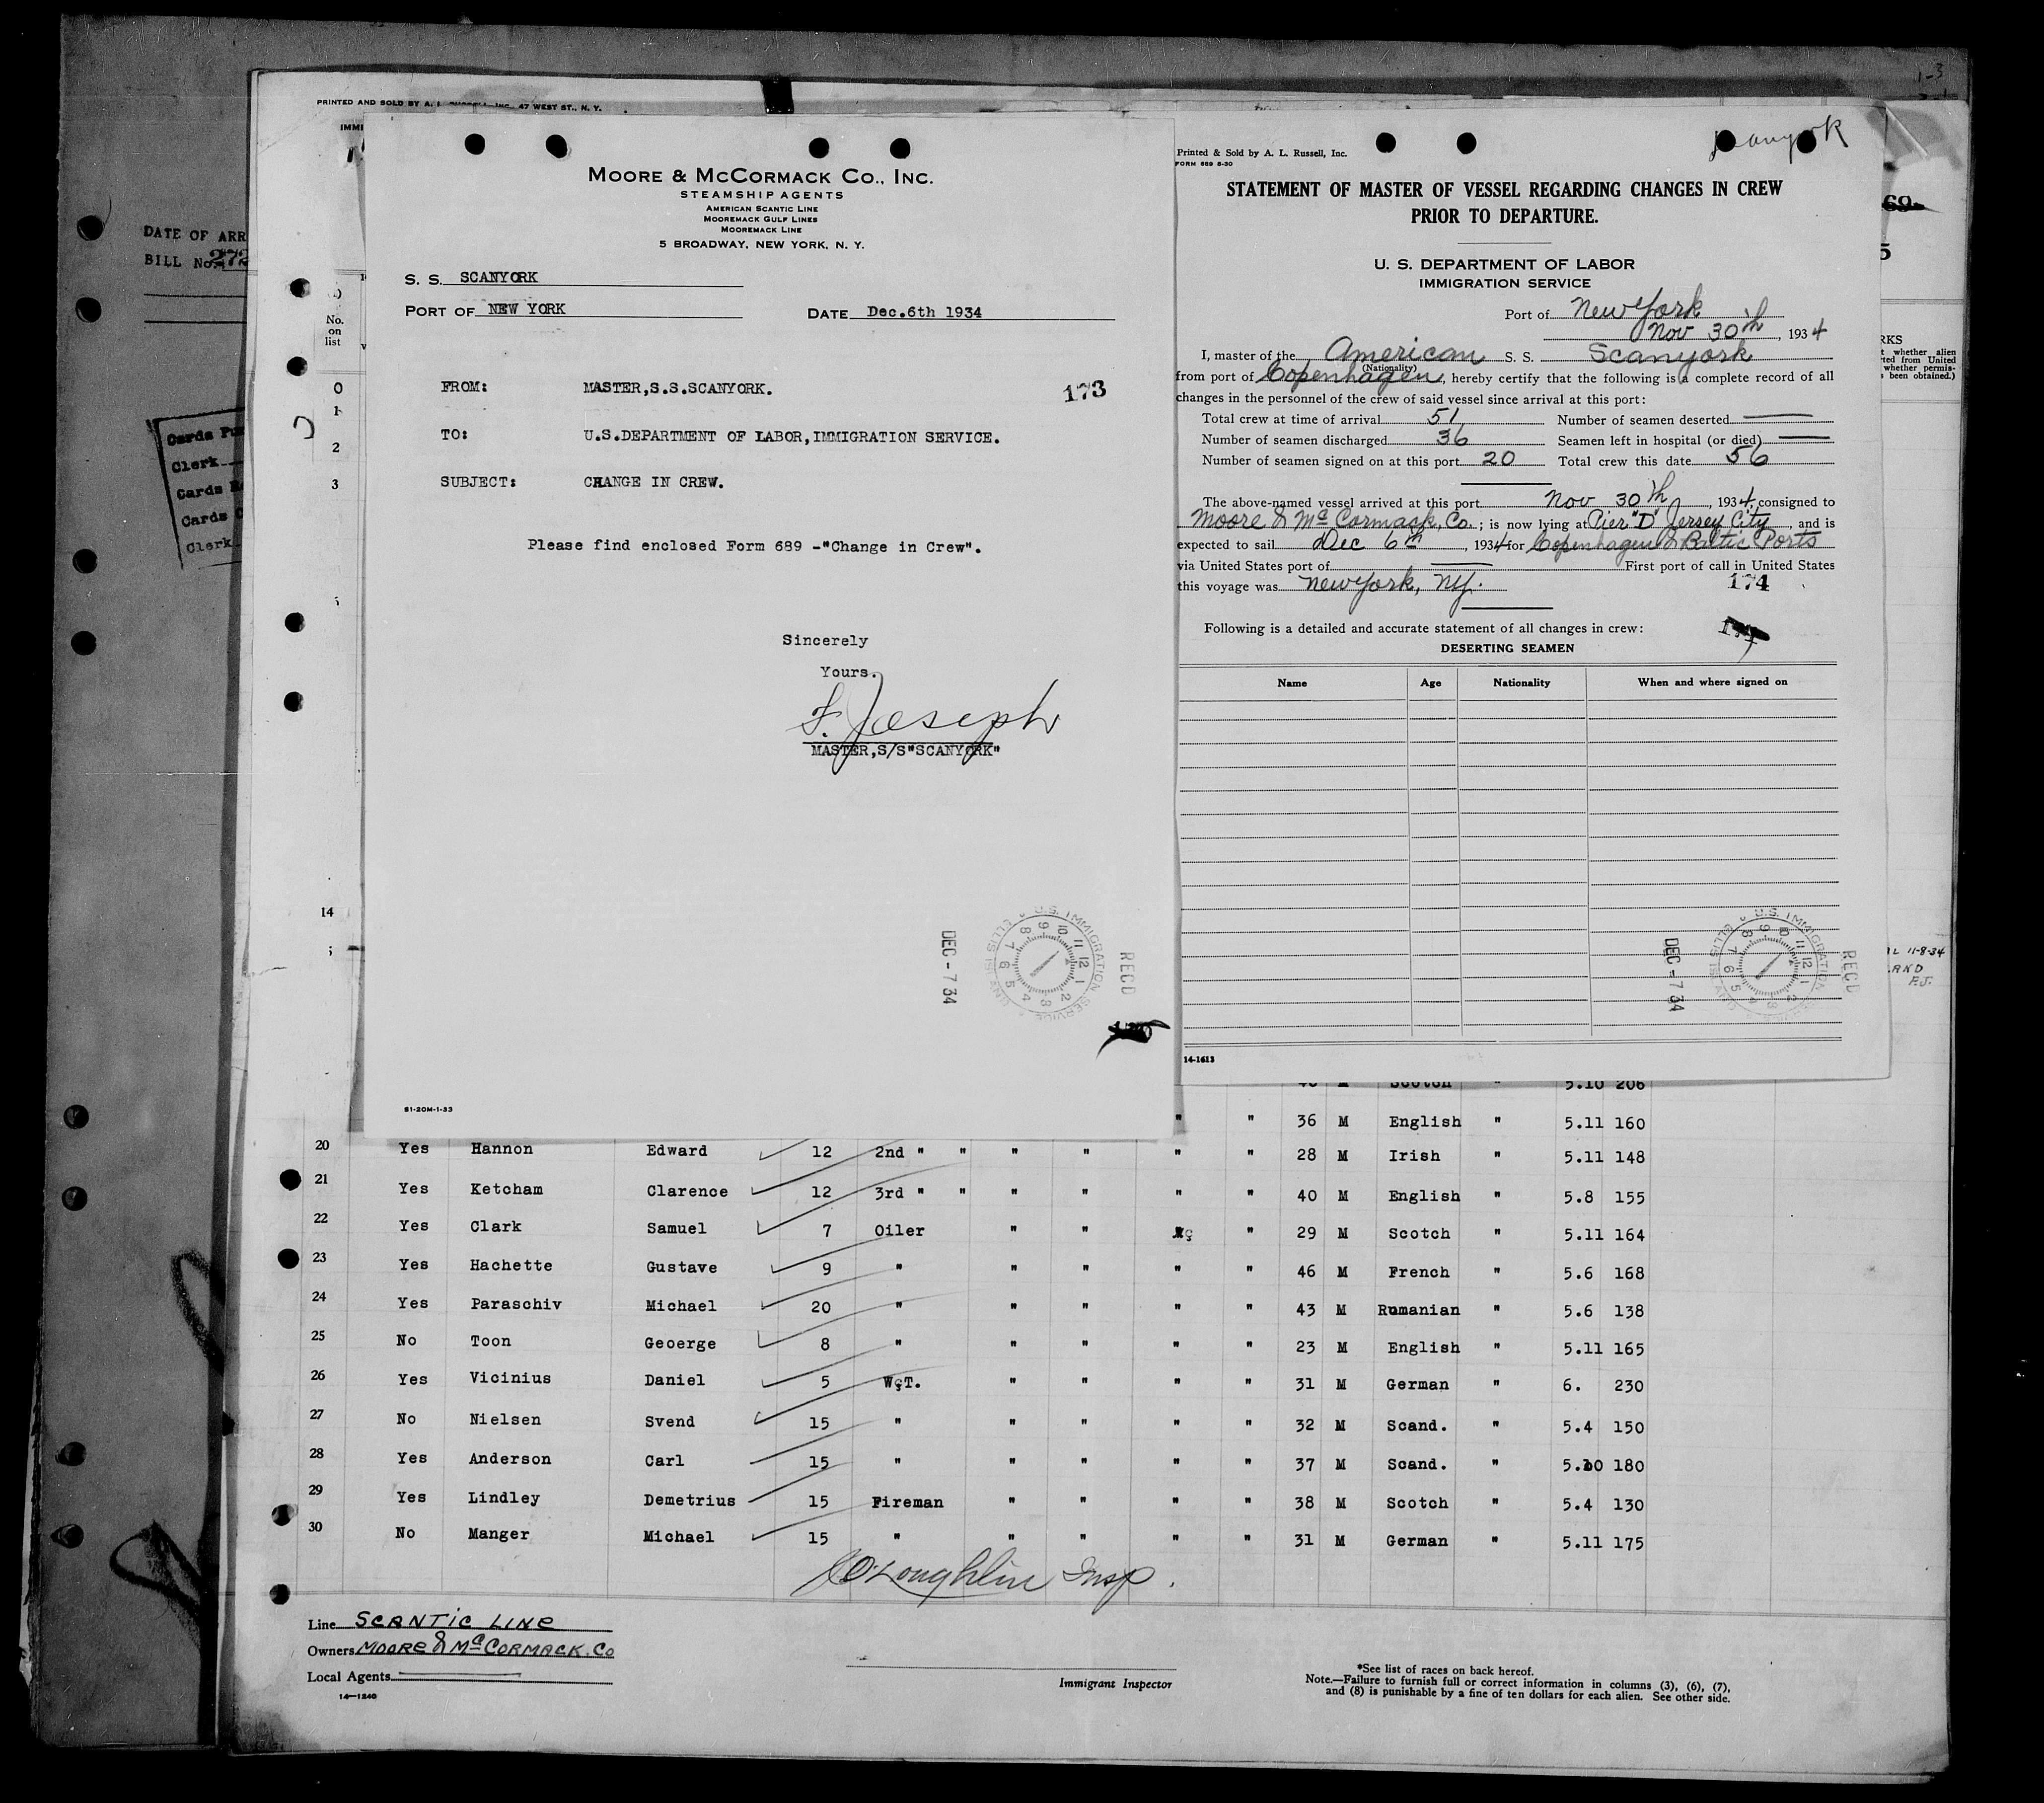 PRINTED AND SOLD BY A. L. RUSSELL, INC., 47 WEST ST., N. Y.
DATE OF ARR
BILL No. 272
Cards
Clerk
Cards
Cards
Clerk
No.
on
list
0
1
2
3
14
MOORE & MCCORMACK CO., INC.
STEAMSHIP AGENTS
AMERICAN SCANTIC LINE
MOOREMACK GULF LINES
MOOREMACK LINE
5 BROADWAY, NEW YORK, N. Y.
S. S. SCANYORK
PORT OF NEW YORK DATE Dec.6th 1934
FROM: MASTER,S.S.SCANYORK. 173
TO: U.S.DEPARTMENT OF LABOR,IMMIGRATION SERVICE.
SUBJECT: CHANGE IN CREW.
Please find enclosed Form 689 -"Change in Crew".
Sincerely
Yours.
F. Joseph
MASTER,S/S"SCANYORK"
DEC - 7 34
U.S. IMMIGRATION SERVICE ELLIS ISLAND
RECD
S1-20M-1-33
Scanyork
Printed & Sold by A. L. Russell, Inc.
FORM 689 8-30
STATEMENT OF MASTER OF VESSEL REGARDING CHANGES IN CREW
PRIOR TO DEPARTURE.
U. S. DEPARTMENT OF LABOR
IMMIGRATION SERVICE
Port of New York
Nov 30th, 1934
I, master of the American S. S. Scanyork
(Nationality)
from port of Copenhagen, hereby certify that the following is a complete record of all
changes in the personnel of the crew of said vessel since arrival at this port:
Total crew at time of arrival 51 Number of seamen deserted —
Number of seamen discharged 36 Seamen left in hospital (or died) —
Number of seamen signed on at this port 20 Total crew this date 56
The above-named vessel arrived at this port Nov 30th, 1934, consigned to
Moore & McCormack, Co.; is now lying at Pier "D" Jersey City, and is
expected to sail Dec 6th, 1934 for Copenhagen & Baltic Ports
via United States port of — First port of call in United States
this voyage was New York, NY. 174
Following is a detailed and accurate statement of all changes in crew:
DESERTING SEAMEN
Name Age Nationality When and where signed on
DEC - 7 34
U.S. IMMIGRATION SERVICE ELLIS ISLAND
RECD
14-1613
69
5
RKS
t whether alien
ted from United
whether permis-
s been obtained.)
L 11-8-34
AND
F.J.
Scotch " 5.10 206
" " 36 M English " 5.11 160
20 Yes Hannon Edward 12 2nd " " " " " " 28 M Irish " 5.11 148
21 Yes Ketcham Clarence 12 3rd " " " " " " 40 M English " 5.8 155
22 Yes Clark Samuel 7 Oiler " " " 29 M Scotch " 5.11 164
23 Yes Hachette Gustave 9 " " " " " 46 M French " 5.6 168
24 Yes Paraschiv Michael 20 " " " " " 43 M Rumanian " 5.6 138
25 No Toon Geoerge 8 " " " " " 23 M English " 5.11 165
26 Yes Vicinius Daniel 5 W.T. " " " " 31 M German " 6. 230
27 No Nielsen Svend 15 " " " " " 32 M Scand. " 5.4 150
28 Yes Anderson Carl 15 " " " " " 37 M Scand. " 5.10 180
29 Yes Lindley Demetrius 15 Fireman " " " " 38 M Scotch " 5.4 130
30 No Manger Michael 15 " " " " " 31 M German " 5.11 175
O'Loughlin Insp.
Line SCANTIC LINE
Owners MOORE & McCORMACK. Co
Local Agents
14—1240
Immigrant Inspector
*See list of races on back hereof.
Note.—Failure to furnish full or correct information in columns (3), (6), (7),
and (8) is punishable by a fine of ten dollars for each alien. See other side.